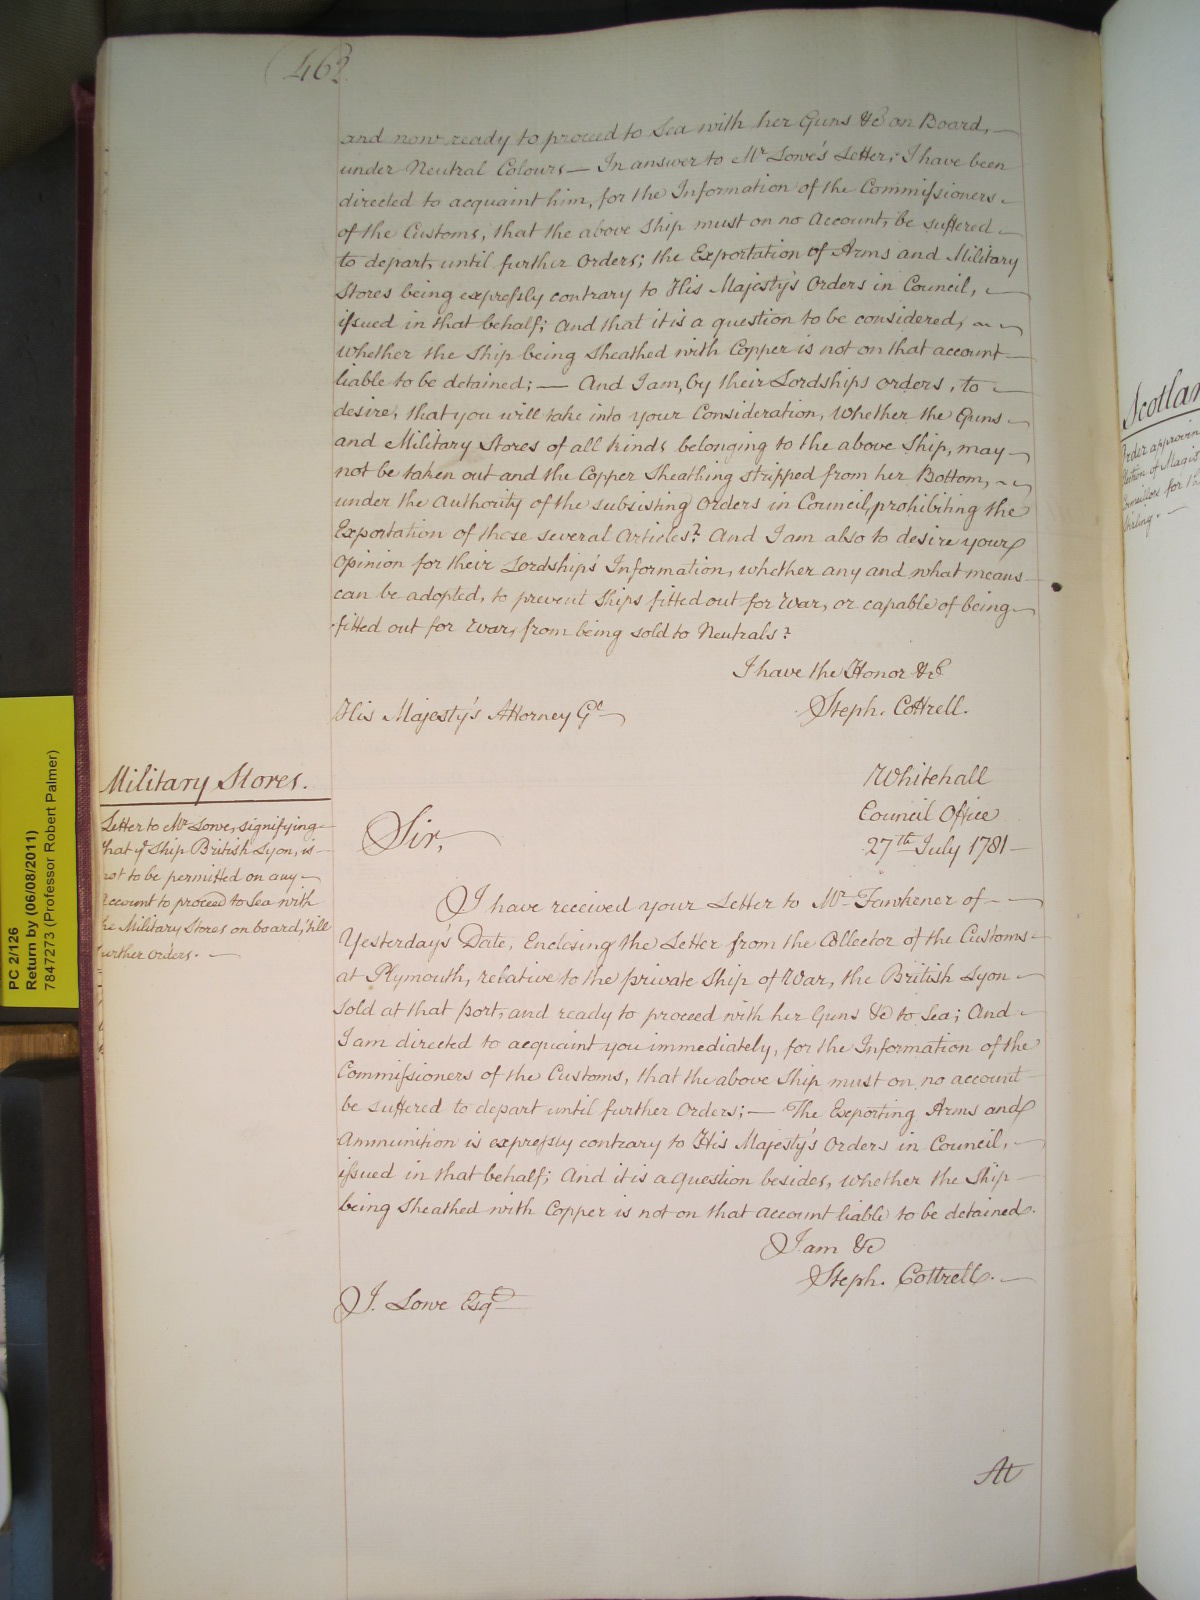 462
and now ready to proceed to Sea with her Guns &c on Board, —
under Neutral Colours — In answer to Mr Lowe's Letter; I have been
directed to acquaint him, for the Information of the Commissioners
of the Customs, that the above Ship must on no Account, be suffered
to depart, until further Orders; the Exportation of Arms and Military
Stores being expressly contrary to His Majesty's Orders in Council,
issued in that behalf; And that it is a question to be considered,
whether the Ship being Sheathed with Copper is not on that account
liable to be detained; — And I am, by their Lordships orders, to
desire, that you will take into your Consideration, whether the Guns
and Military Stores of all kinds belonging to the above Ship, may
not be taken out and the Copper Sheathing stripped from her Bottom,
under the Authority of the subsisting Orders in Council, prohibiting the
Exportation of those several Articles? And I am also to desire your
Opinion for their Lordship's Information, whether any and what means
can be adopted, to prevent Ships fitted out for War, or capable of being
fitted out for War, from being sold to Neutrals?
I have the Honor &c
His Majesty's Attorney Gl
Steph. Cottrell.
Military Stores.
Letter to Mr Lowe, signifying
that ye Ship British Lyon, is
not to be permitted on any
account to proceed to Sea with
he Military Stores on board, 'till
urther Orders. —
Whitehall
Council Office
27th July 1781 —
Sir,
I have received your Letter to Mr Fawkener of
Yesterday's Date, Enclosing the Letter from the Collector of the Customs
at Plymouth, relative to the private Ship of War, the British Lyon
sold at that port, and ready to proceed with her Guns &c to Sea; And
I am directed to acquaint you immediately, for the Information of the
Commissioners of the Customs, that the above Ship must on no account
be suffered to depart until further Orders; — The Exporting Arms and
Ammunition is expressly contrary to His Majesty's Orders in Council,
issued in that behalf; And it is a question besides, whether the Ship
being Sheathed with Copper is not on that account liable to be detained.
I am &c
Steph. Cottrell. —
J. Lowe Esqr
At
PC 2/126
Return by (06/08/2011)
7847273 (Professor Robert Palmer)
Scotlan
Order approvin
lection of Magist
ouncillors for th
tirling. —